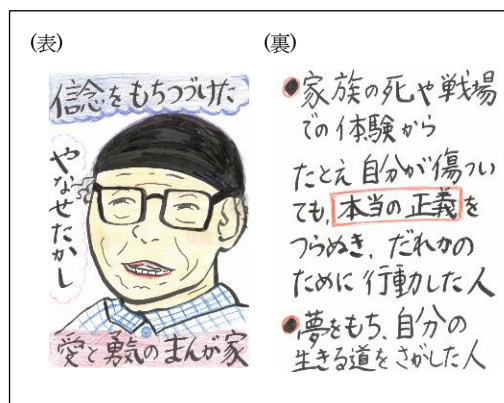 (表)
信念をもちつづけた
やなせたかし
愛と勇気のまんが家
(裏)
●家族の死や戦場
での体験から
たとえ自分が傷つい
ても、本当の正義を
つらぬき、だれかの
ために行動した人
●夢をもち、自分の
生きる道をさがした人